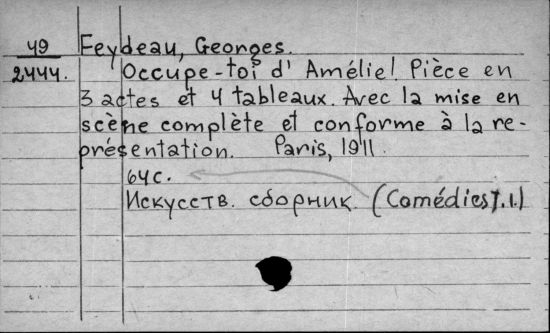 49 Feydeau, Georges.
2444. Occupe-toi d' Amélie! Pièce en
3 actes et 4 tableaux. Avec la mise en
scène complète et conforme à la re-
présentation. Paris, 1911.
64с.
Искусств. сборник. (Comédies T.1.)